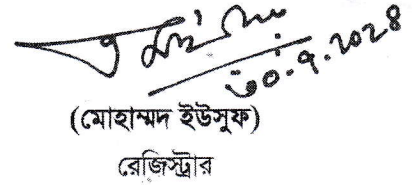 ৩০.৭.২০২৪
(মোহাম্মদ ইউসুফ)
রেজিস্ট্রার